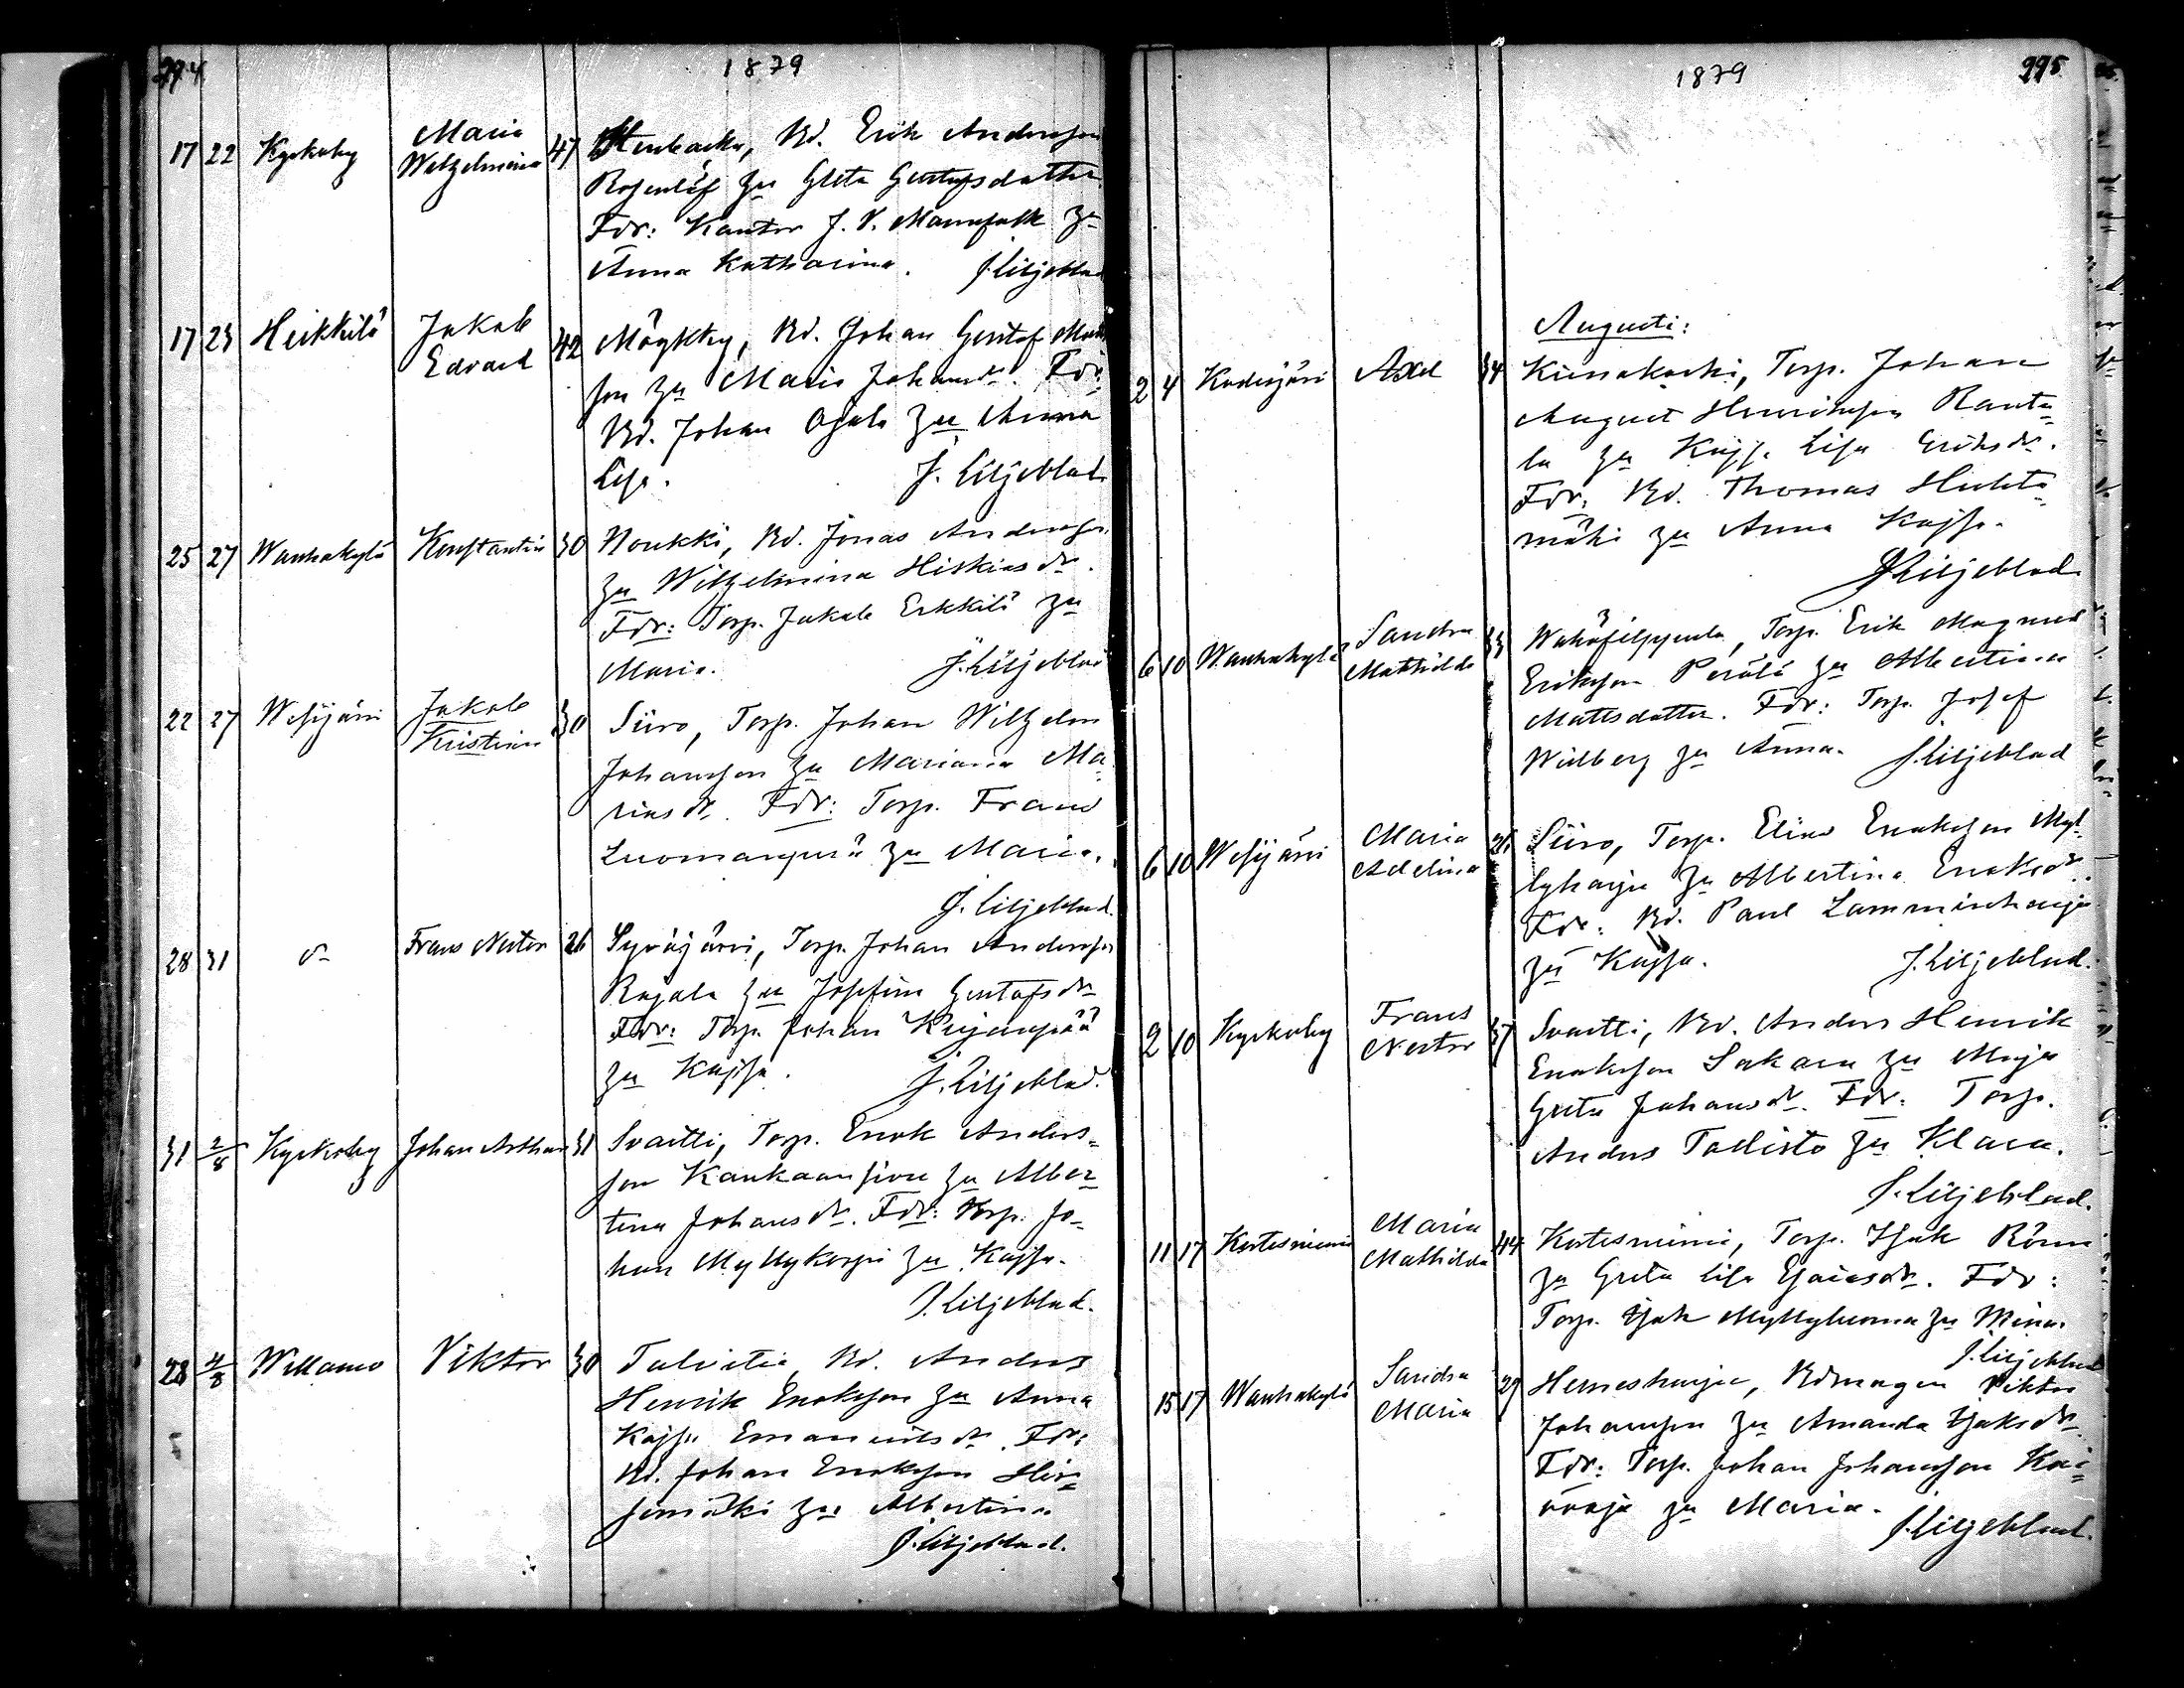 294
1879
17 22 Kyrkoby Maria Wilhelmina 47 Stenbacka, Bd. Erik Andersson
Rosenlöf hu Greta Gustafsdotter
Fdr: Kantor J. V. Mannfolk hu
Anna Katharina. J. Liljeblad
17 23 Heikkilä Jakob Edvard 42 Möykky, Bd. Johan Gustaf Matts
son hu Maria Johansdr. Fdr:
Bd. Johan Ojala hu Anna
Lisa. J. Liljeblad
25 27 Wanhakylä Konstantin 30 Noukki, Bd. Jonas Andersson
hu Wilhelmina Hiskiasdr.
Fdr: Torp. Jakob Erkkilä hu
Maria. J. Liljeblad
22 27 Wesijärvi Jakob Kristian 30 Siiro, Torp. Johan Wilhelm
Johansson hu Mariana Ma-
riasdr. Fdr: Torp. Frans
Luomanperä hu Maria.
J. Liljeblad.
28 31 dn Frans Nestor 26 Syväjärvi, Torp. Johan Andersson
Rajala hu Josefina Gustafsdr
Fdr: Torp. Johan Kujanpää
hu Kajsa. J. Liljeblad.
31 2/8 Kyrkoby Johan Arthur 31 Svartti, Torp. Enok Anders-
son Kankaansivu hu Alber-
tina Johansdr. Fdr: Torp. Jo-
han Myllykorpi hu Kajsa.
J. Liljeblad.
28 4/8 Willamo Viktor 30 Talvitie, Bd. Anders
Henrik Enoksson hu Anna
Kajsa Emanuelsdr. Fdr:
Bd. Johan Enoksson Hir-
simäki hu Albertina
J. Liljeblad.
1879
295
Augusti:
2 4 Kodesjärvi Axel 34 Kiinakoski, Torp. Johan
August Henriksson Ranta-
la hu Kajsa Lisa Eriksdr.
Fdr: Bd. Thomas Huhta-
mäki hu Anna Kajsa.
J. Liljeblad
6 10 Wanhakylä Sandra Mathilda 33 Wähäfilppula, Torp. Erik Magnus
Eriksson Perälä hu Albertina
Mattsdotter. Fdr: Torp. Josef
Widberg hu Anna. J. Liljeblad
6 10 Wesijärvi Maria Adelina Siiro, Torp. Elias Enoksson Myl-
lyharju hu Albertina Enoksdr.
Fdr: Bd. Paul Lamminharju
hu Kajsa. J. Liljeblad.
2 10 Kyrkoby Frans Nestor 37 Svartti, Bd. Anders Henrik
Enoksson Sakara hu Maja
Greta Johansdr. Fdr: Torp.
Anders Tallisto hu Klara.
J. Liljeblad.
11 17 Kortesniemi Maria Mathilda 44 Kortesniemi, Torp. Isak Rönn
hu Greta Lisa Esaiasdr. Fdr:
Torp. Isak Myllyluoma hu Mina.
J. Liljeblad
15 17 Wanhakylä Sandra Maria 29 Hernesharju, Bdmågen Viktor
Johansson hu Amanda Isaksdr.
Fdr: Torp. Johan Johansson Kai-
vooja hu Maria.
J. Liljeblad.